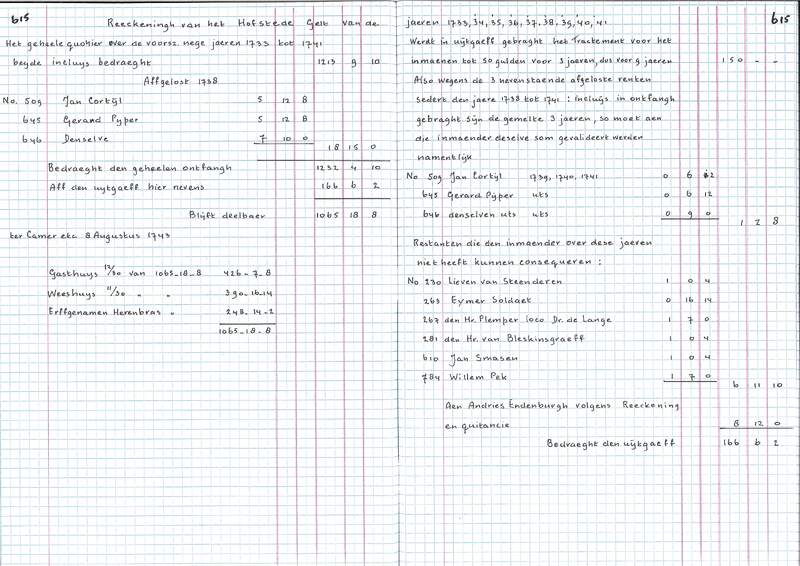 615
Reeckeningh van het Hofstede Gelt van de
Het geheele quohier over de voorsz. nege jaeren 1733 tot 1741
beyde incluys bedraeght 1213 9 10
Affgelost 1738
No. 509 Jan Cortijl 5 12 8
645 Gerard Pyper 5 12 8
646 Denselve 7 10 0
18 15 0
Bedraeght den geheelen ontfangh 1232 4 10
Aff den uytgaeff hier nevens 166 6 2
Blijft deelbaer 1065 18 8
ter Camer etc. 8 Augustus 1743
Gasthuys 12/30 van 1065-18-8 426-7-8
Weeshuys 11/30 " " 390-16-14
Erffgenamen Herenbras " 248-14-2
1065-18-8
jaeren 1733,'34,'35,'36,'37,'38,'39,'40,'41 615
Werdt in uijtgaeff gebraght het Tractement voor het
inmaenen tot 50 gulden voor 3 jaeren, dus voor 9 jaeren 150 - -
Also wegens de 3 nerenstaende afgeloste renten
sedert den jaere 1738 tot 1741 : incluijs in ontfangh
gebraght sijn de gemelte 3 jaeren, so moet aen
die inmaender deselve som gevalideert werden
namentlijk
No 509 Jan Cortijl 1739, 1740, 1741 0 6 12
645 Gerard Pijper uts 0 6 12
646 denselven uts uts 0 9 0
1 2 8
Restanten die den inmaender over dese jaeren
niet heeft kunnen consequeren :
No 230 Lieven van Steenderen 1 0 4
263 Eymer Soldaet 0 16 14
267 den Hr. Plemper loco Dr. de Lange 1 7 0
281 den Hr. van Bleskinsgraeff 1 0 4
610 Jan Smasen 1 0 4
784 Willem Pek 1 7 0
6 11 10
Aen Andries Endenburgh volgens Reeckening
en quitancie 8 12 0
Bedraeght den uijtgaeff 166 6 2